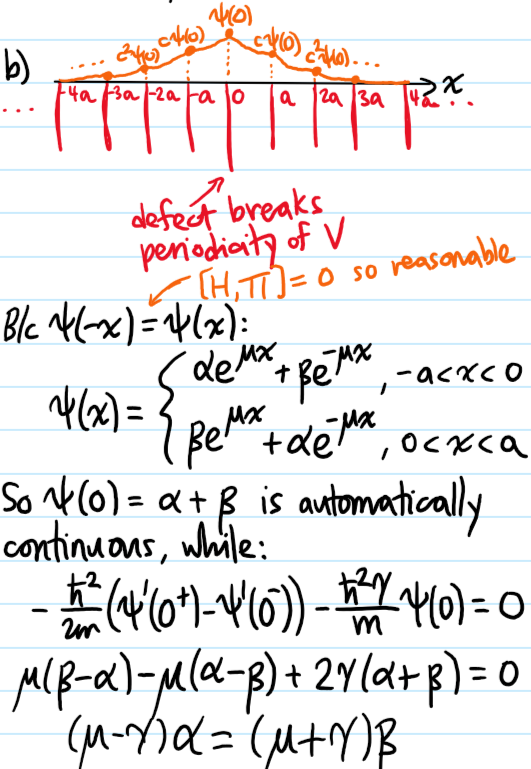 b)
ψ(0)
... c²ψ(0) cψ(0) cψ(0) c²ψ(0) ...
x
... -4a -3a -2a -a 0 a 2a 3a 4a ...
defect breaks
periodicity of V
[H,Π]=0 so reasonable
B/c ψ(-x)=ψ(x):
ψ(x) = { αe^{μx} + βe^{-μx}, -a<x<0
βe^{μx} + αe^{-μx}, 0<x<a
So ψ(0) = α+β is automatically
continuous, while:
-ħ²/2m (ψ'(0⁺)-ψ'(0⁻)) - ħ²γ/m ψ(0) = 0
μ(β-α)-μ(α-β)+2γ(α+β)=0
(μ-γ)α = (μ+γ)β